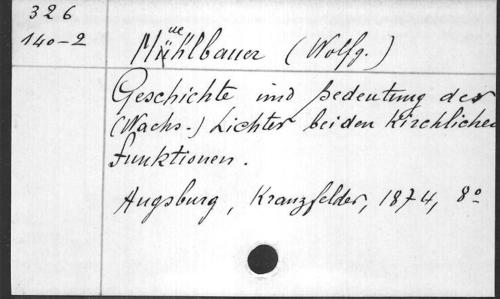 326
140-2
Muehlbauer (Wolfg.)
Geschichte und Bedeutung der
(Wachs-) Lichter bei den Kirchlichen
Funktionen.
Augsburg, Kranzfelder, 1874, 8º